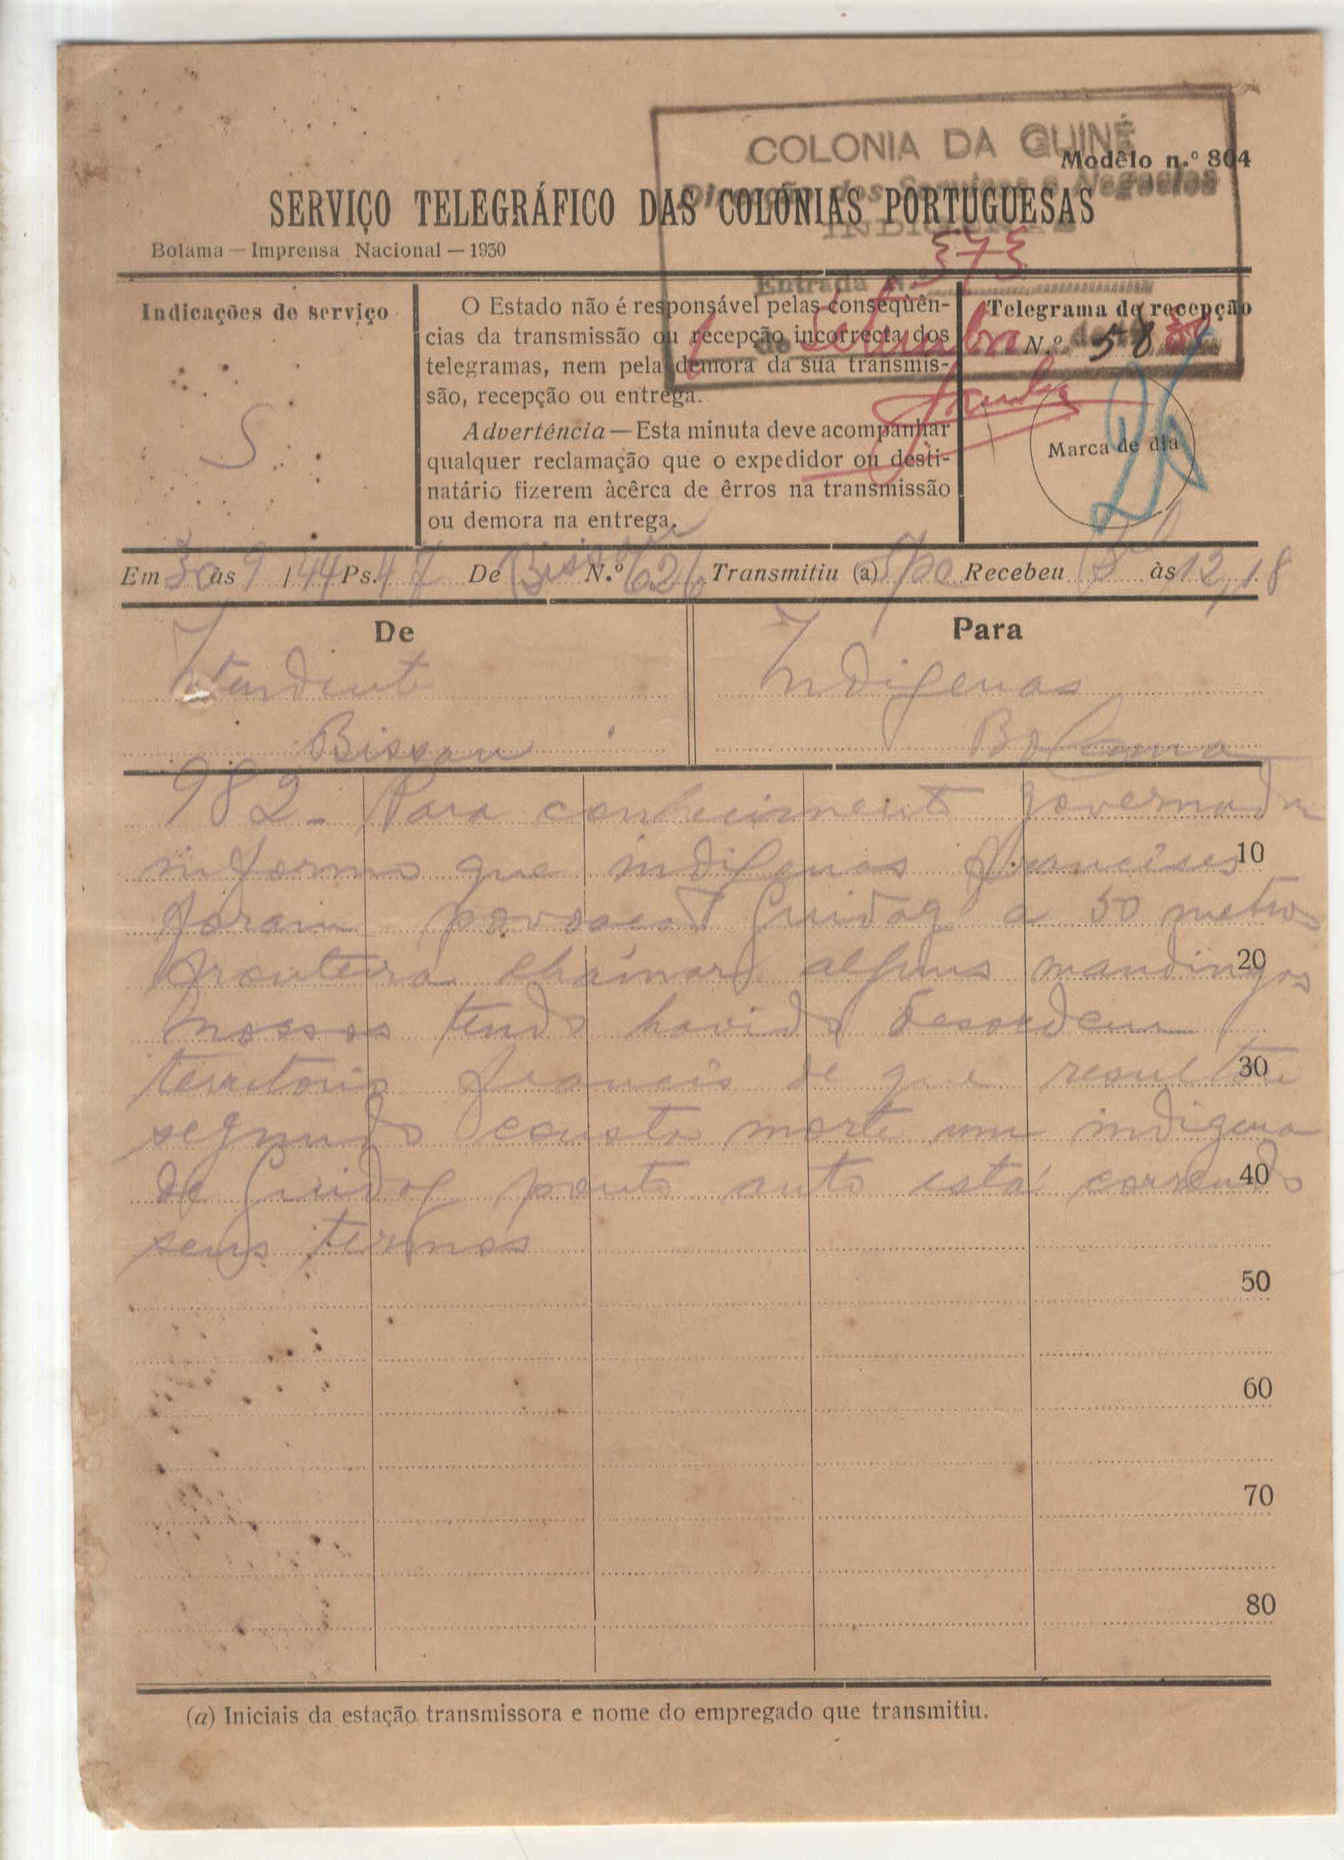 COLONIA DA GUINÉ
Modêlo n.º 804
Direcção dos Serviços e Negocios
INDIGENAS
SERVIÇO TELEGRÁFICO DAS COLÓNIAS PORTUGUESAS
Bolama — Imprensa Nacional — 1930
Entrada N.º 573
Indicações de serviço
S
O Estado não é responsável pelas conseqüên-
cias da transmissão ou recepção incorrecta dos
telegramas, nem pela demora da sua transmis-
são, recepção ou entrega.
Advertência — Esta minuta deve acompanhar
qualquer reclamação que o expedidor ou desti-
natário fizerem àcêrca de êrros na transmissão
ou demora na entrega.
de Setembro de
Telegrama de recepção
N.º 58
Marca de dia
Em 30 às 9 / 44 Ps. 47 De Bissau N.º 626 Transmitiu (a) Recebeu às 12,18
De
Intendente
Bissau
Para
Indigenas
Bolama
982 - Para conhecimento governador
informo que indigenas franceses 10
foram povoaçao Guidag a 50 metros
fronteira chamar alguns mandingas 20
nossos tendo havido desordem
territorio francês de que resultou 30
segundo consta morte um indigena
de Guidag ponto auto está correndo 40
seus termos
50
60
70
80
(a) Iniciais da estação transmissora e nome do empregado que transmitiu.